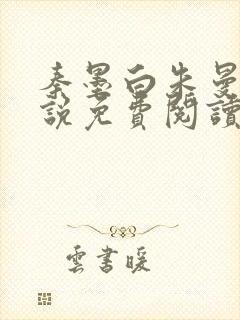 秦墨白朱曼
說免費閱讀
雲書暖